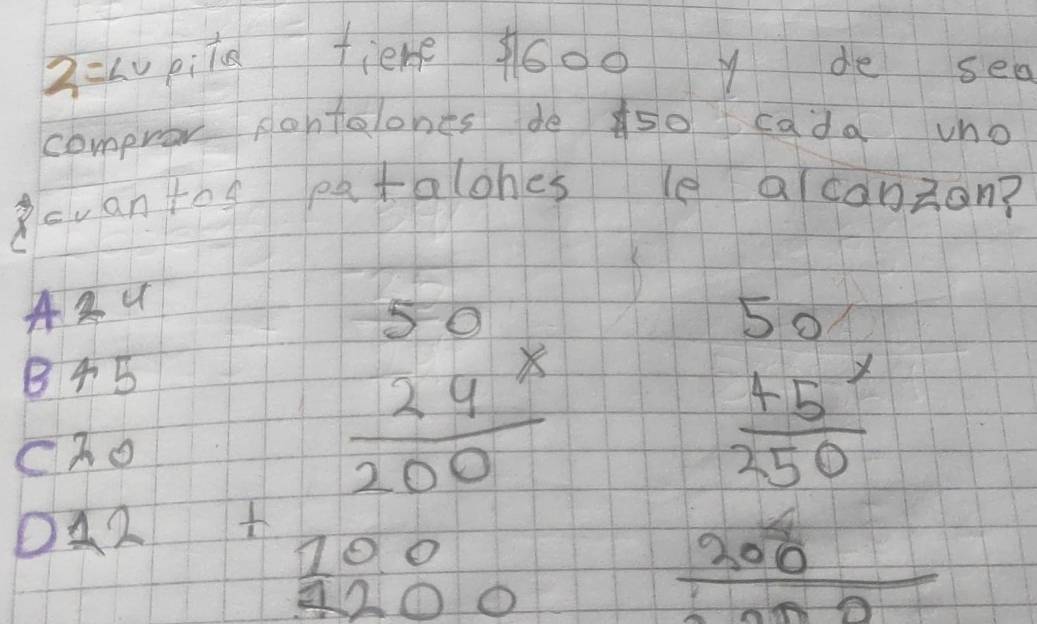 2=Lupita tiene $600 y de sea
comprar pantalones de $50 cada uno
¿cuantos patalones le alcanzan?
A 24 50 50
B 45 24 x 45 x
C 20 200 250
D 12 + 100 200
1200